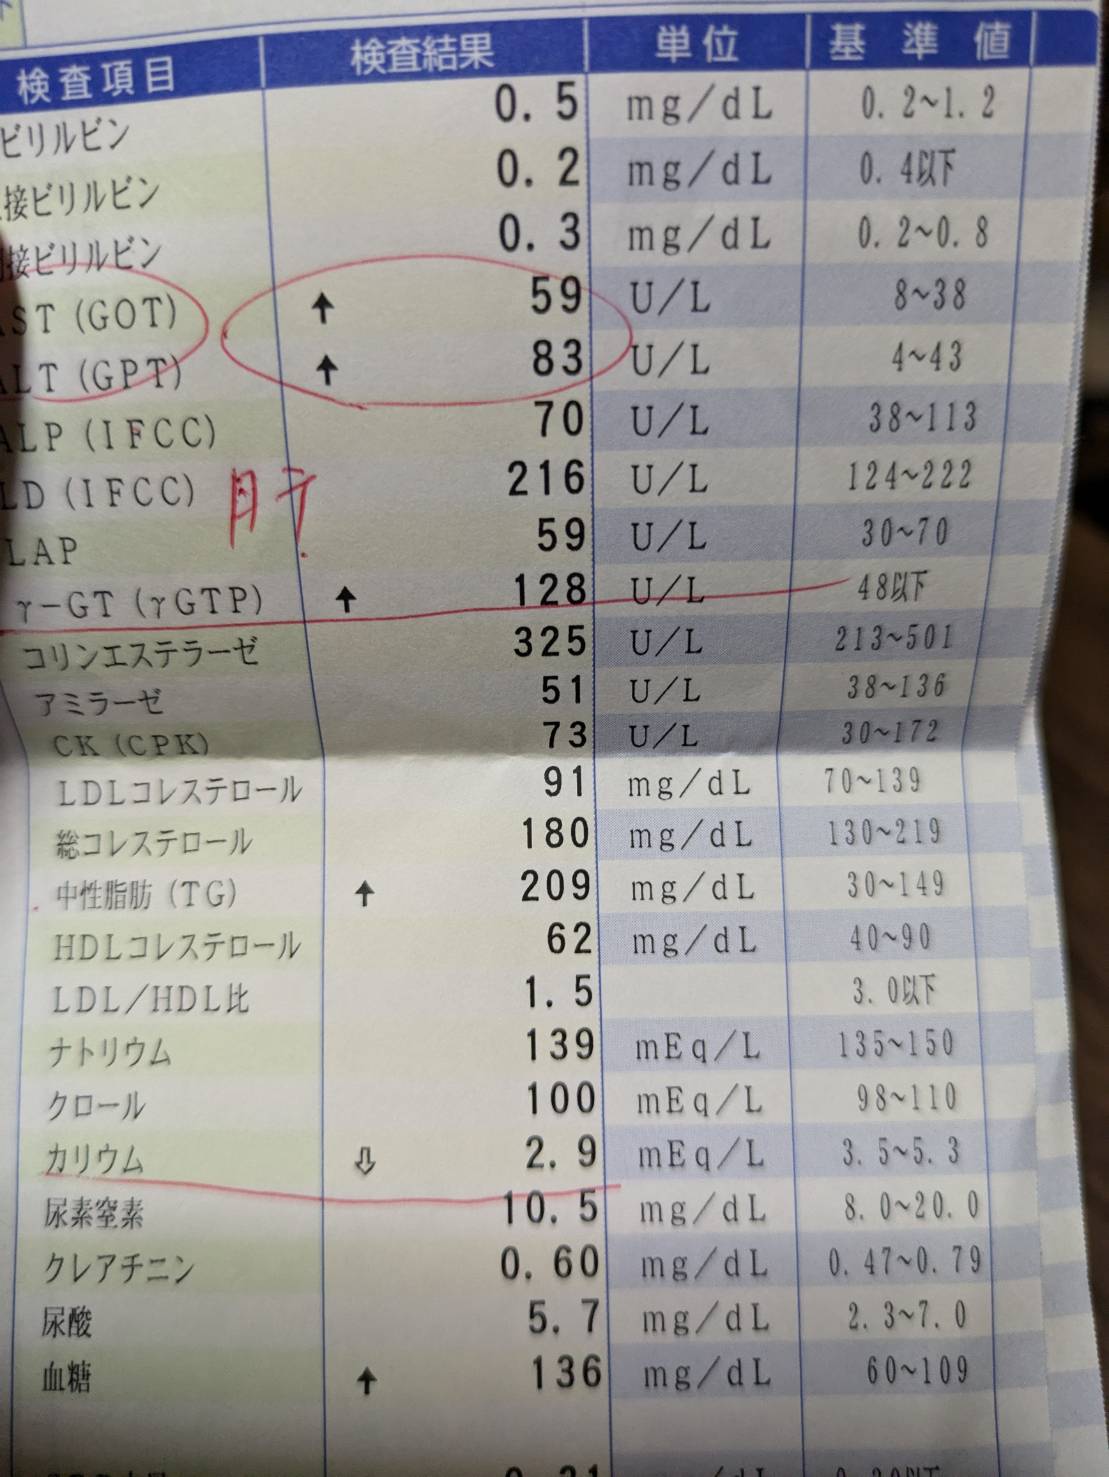 検査項目 検査結果 単位 基準値
ビリルビン 0.5 mg/dL 0.2~1.2
接ビリルビン 0.2 mg/dL 0.4以下
接ビリルビン 0.3 mg/dL 0.2~0.8
AST(GOT) ↑ 59 U/L 8~38
ALT(GPT) ↑ 83 U/L 4~43
ALP(IFCC) 70 U/L 38~113
LD(IFCC) 216 U/L 124~222
肝
LAP 59 U/L 30~70
γ-GT(γGTP) ↑ 128 U/L 48以下
コリンエステラーゼ 325 U/L 213~501
アミラーゼ 51 U/L 38~136
CK(CPK) 73 U/L 30~172
LDLコレステロール 91 mg/dL 70~139
総コレステロール 180 mg/dL 130~219
中性脂肪(TG) ↑ 209 mg/dL 30~149
HDLコレステロール 62 mg/dL 40~90
LDL/HDL比 1.5 3.0以下
ナトリウム 139 mEq/L 135~150
クロール 100 mEq/L 98~110
カリウム ⇩ 2.9 mEq/L 3.5~5.3
尿素窒素 10.5 mg/dL 8.0~20.0
クレアチニン 0.60 mg/dL 0.47~0.79
尿酸 5.7 mg/dL 2.3~7.0
血糖 ↑ 136 mg/dL 60~109